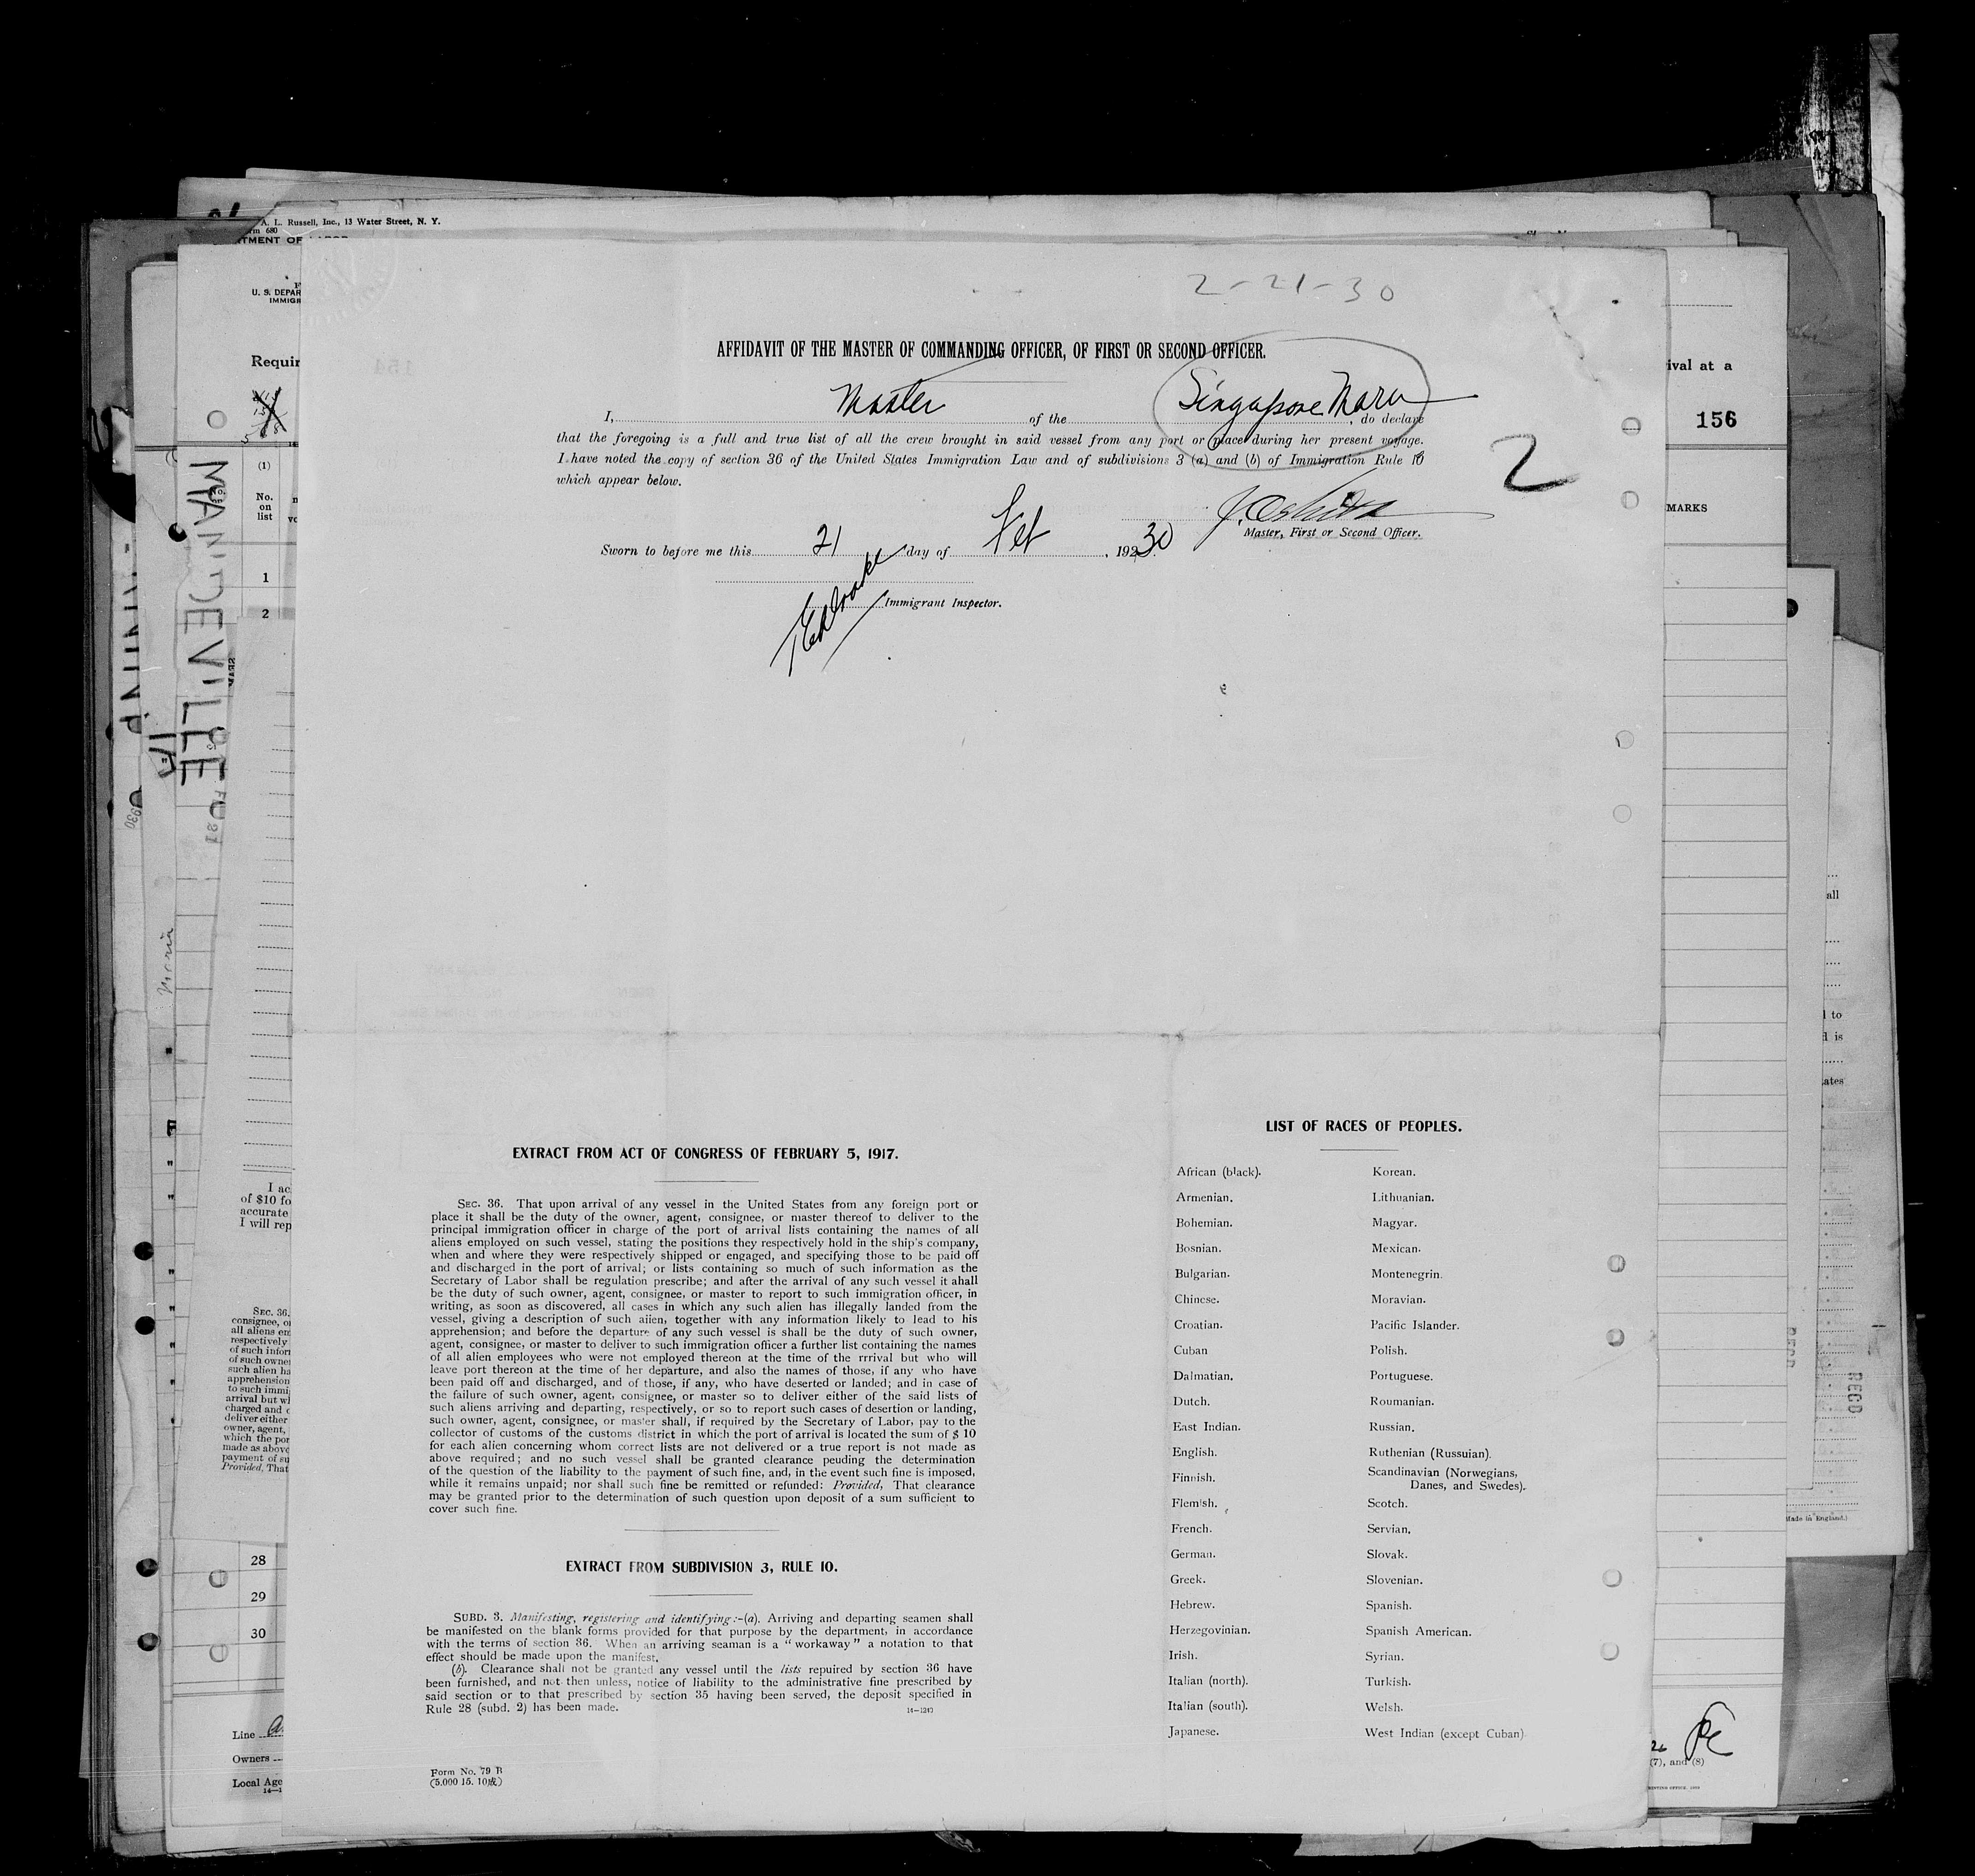 A. L. Russell, Inc., 13 Water Street, N. Y.
2-21-30
AFFIDAVIT OF THE MASTER OF COMMANDING OFFICER, OF FIRST OR SECOND OFFICER.
I, Master of the Singapore Maru, do declare
that the foregoing is a full and true list of all the crew brought in said vessel from any port or place during her present voyage.
I have noted the copy of section 36 of the United States Immigration Law and of subdivisions 3 (a) and (b) of Immigration Rule 10
which appear below.
2
Master, First or Second Officer.
Sworn to before me this 21 day of Feb, 19230
Immigrant Inspector.
156
ival at a
MARKS
Requir
U. S. DEPAR
IMMIGR
(1)
No.
on
list
1
2
MANDEVILLE
EXTRACT FROM ACT OF CONGRESS OF FEBRUARY 5, 1917.
SEC. 36. That upon arrival of any vessel in the United States from any foreign port or
place it shall be the duty of the owner, agent, consignee, or master thereof to deliver to the
principal immigration officer in charge of the port of arrival lists containing the names of all
aliens employed on such vessel, stating the positions they respectively hold in the ship's company,
when and where they were respectively shipped or engaged, and specifying those to be paid off
and discharged in the port of arrival; or lists containing so much of such information as the
Secretary of Labor shall be regulation prescribe; and after the arrival of any such vessel it ahall
be the duty of such owner, agent, consignee, or master to report to such immigration officer, in
writing, as soon as discovered, all cases in which any such alien has illegally landed from the
vessel, giving a description of such alien, together with any information likely to lead to his
apprehension; and before the departure of any such vessel is shall be the duty of such owner,
agent, consignee, or master to deliver to such immigration officer a further list containing the names
of all alien employees who were not employed thereon at the time of the rrrival but who will
leave port thereon at the time of her departure, and also the names of those, if any who have
been paid off and discharged, and of those, if any, who have deserted or landed; and in case of
the failure of such owner, agent, consignee, or master so to deliver either of the said lists of
such aliens arriving and departing, respectively, or so to report such cases of desertion or landing,
such owner, agent, consignee, or master shall, if required by the Secretary of Labor, pay to the
collector of customs of the customs district in which the port of arrival is located the sum of $ 10
for each alien concerning whom correct lists are not delivered or a true report is not made as
above required; and no such vessel shall be granted clearance peuding the determination
of the question of the liability to the payment of such fine, and, in the event such fine is imposed,
while it remains unpaid; nor shall such fine be remitted or refunded: Provided, That clearance
may be granted prior to the determination of such question upon deposit of a sum sufficient to
cover such fine.
EXTRACT FROM SUBDIVISION 3, RULE 10.
SUBD. 3. Manifesting, registering and identifying:-(a). Arriving and departing seamen shall
be manifested on the blank forms provided for that purpose by the department, in accordance
with the terms of section 36. When an arriving seaman is a "workaway" a notation to that
effect should be made upon the manifest.
(b). Clearance shall not be granted any vessel until the lists repuired by section 36 have
been furnished, and not then unless, notice of liability to the administrative fine prescribed by
said section or to that prescribed by section 35 having been served, the deposit specified in
Rule 28 (subd. 2) has been made.
14-1240
Form No. 79 B
LIST OF RACES OF PEOPLES.
African (black). Korean.
Armenian. Lithuanian.
Bohemian. Magyar.
Bosnian. Mexican.
Bulgarian. Montenegrin.
Chinese. Moravian.
Croatian. Pacific Islander.
Cuban Polish.
Dalmatian. Portuguese.
Dutch. Roumanian.
East Indian. Russian.
English. Ruthenian (Russuian).
Finnish. Scandinavian (Norwegians,
Danes, and Swedes).
Flemish. Scotch.
French. Servian.
German. Slovak.
Greek. Slovenian.
Hebrew. Spanish.
Herzegovinian. Spanish American.
Irish. Syrian.
Italian (north). Turkish.
Italian (south). Welsh.
Japanese. West Indian (except Cuban)
28
29
30
Line
Owners
Local Age
(7), and (8)
Made in England.)
RECD